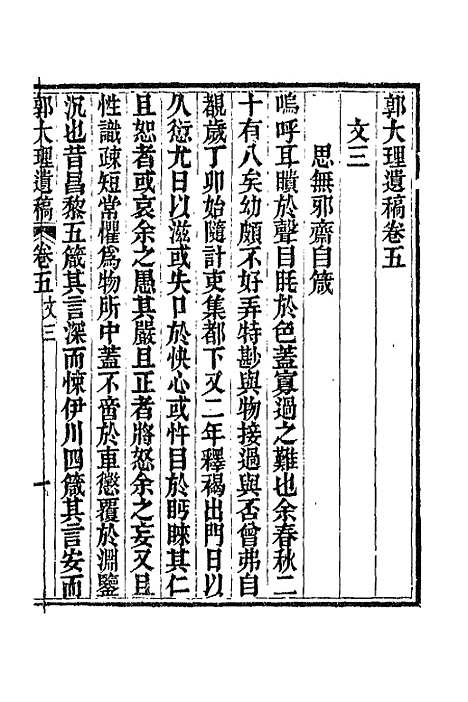 郭大理遺稿卷五
文三
思無邪齋自箴
嗚呼耳聵於聲目眊於色蓋寡過之難也余春秋二
十有八矣幼頗不好弄特尠與物接過與否曾弗自
覩歲丁卯始隨計吏集都下又二年釋褐出門日以
久愆尤日以滋或失口於快心或忤目於眄睞其仁
且恕者或哀余之愚其嚴且正者將怒余之妄又且
性識疎短常懼爲物所中蓋不啻於車懲覆於淵鑒
沉也昔昌黎五箴其言深而悚伊川四箴其言安而
郭大理遺稿 卷五 文三 一